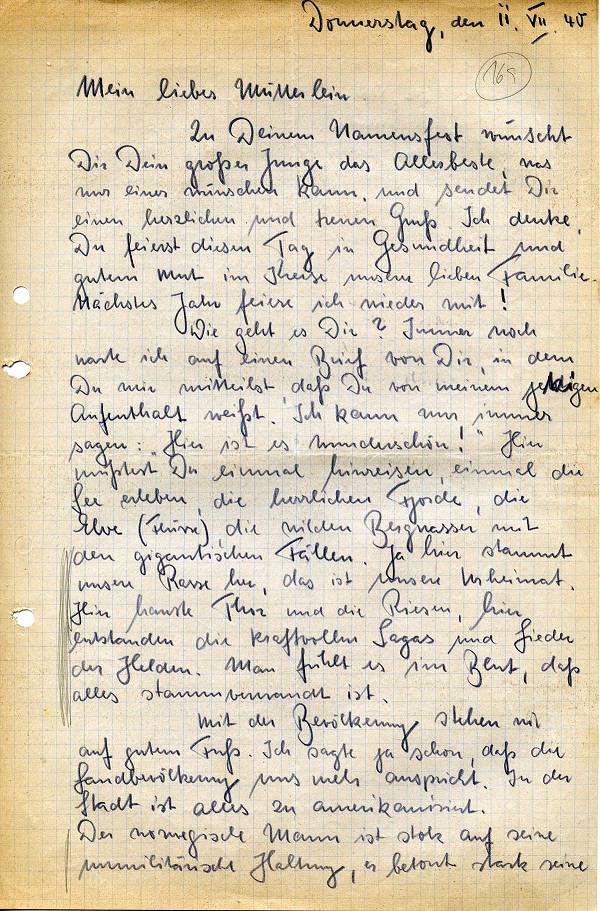 Donnerstag, den 11. VII. 40
169
Mein liebes Mütterlein.
Zu Deinem Namensfest wünscht
Dir Dein großer Junge das Allerbeste, was
nur einer wünschen kann, und sendet Dir
einen herzlichen und treuen Gruß. Ich denke,
Du feierst diesen Tag in Gesundheit und
gutem Mut im Kreise unserer lieben Familie.
Nächstes Jahr feiere ich wieder mit!
Wie geht es Dir? Immer noch
warte ich auf einen Brief von Dir, in dem
Du mir mitteilst, daß Du von meinem jetzigen
Aufenthalt weißt. Ich kann nur immer
sagen: "Hier ist es wunderschön!" Hier
müßtest Du einmal hinreisen, einmal die
See erleben, die herrlichen Fjorde, die
Elve (Flüsse), die wilden Bergwasser mit
den gigantischen Fällen. Ja hier stammt
unsere Rasse her, das ist unsere Urheimat.
Hier hauste Thor und die Riesen, hier
entstanden die kraftvollen Sagas und Lieder
der Helden. Man fühlt es im Blut, daß
alles stammverwandt ist.
Mit der Bevölkerung stehen wir
auf gutem Fuß. Ich sagte ja schon, daß die
Landbevölkerung uns mehr anspricht. In der
Stadt ist alles zu amerikanisiert.
Der norwegische Mann ist stolz auf seine
unmilitärische Haltung, er betont stark seine